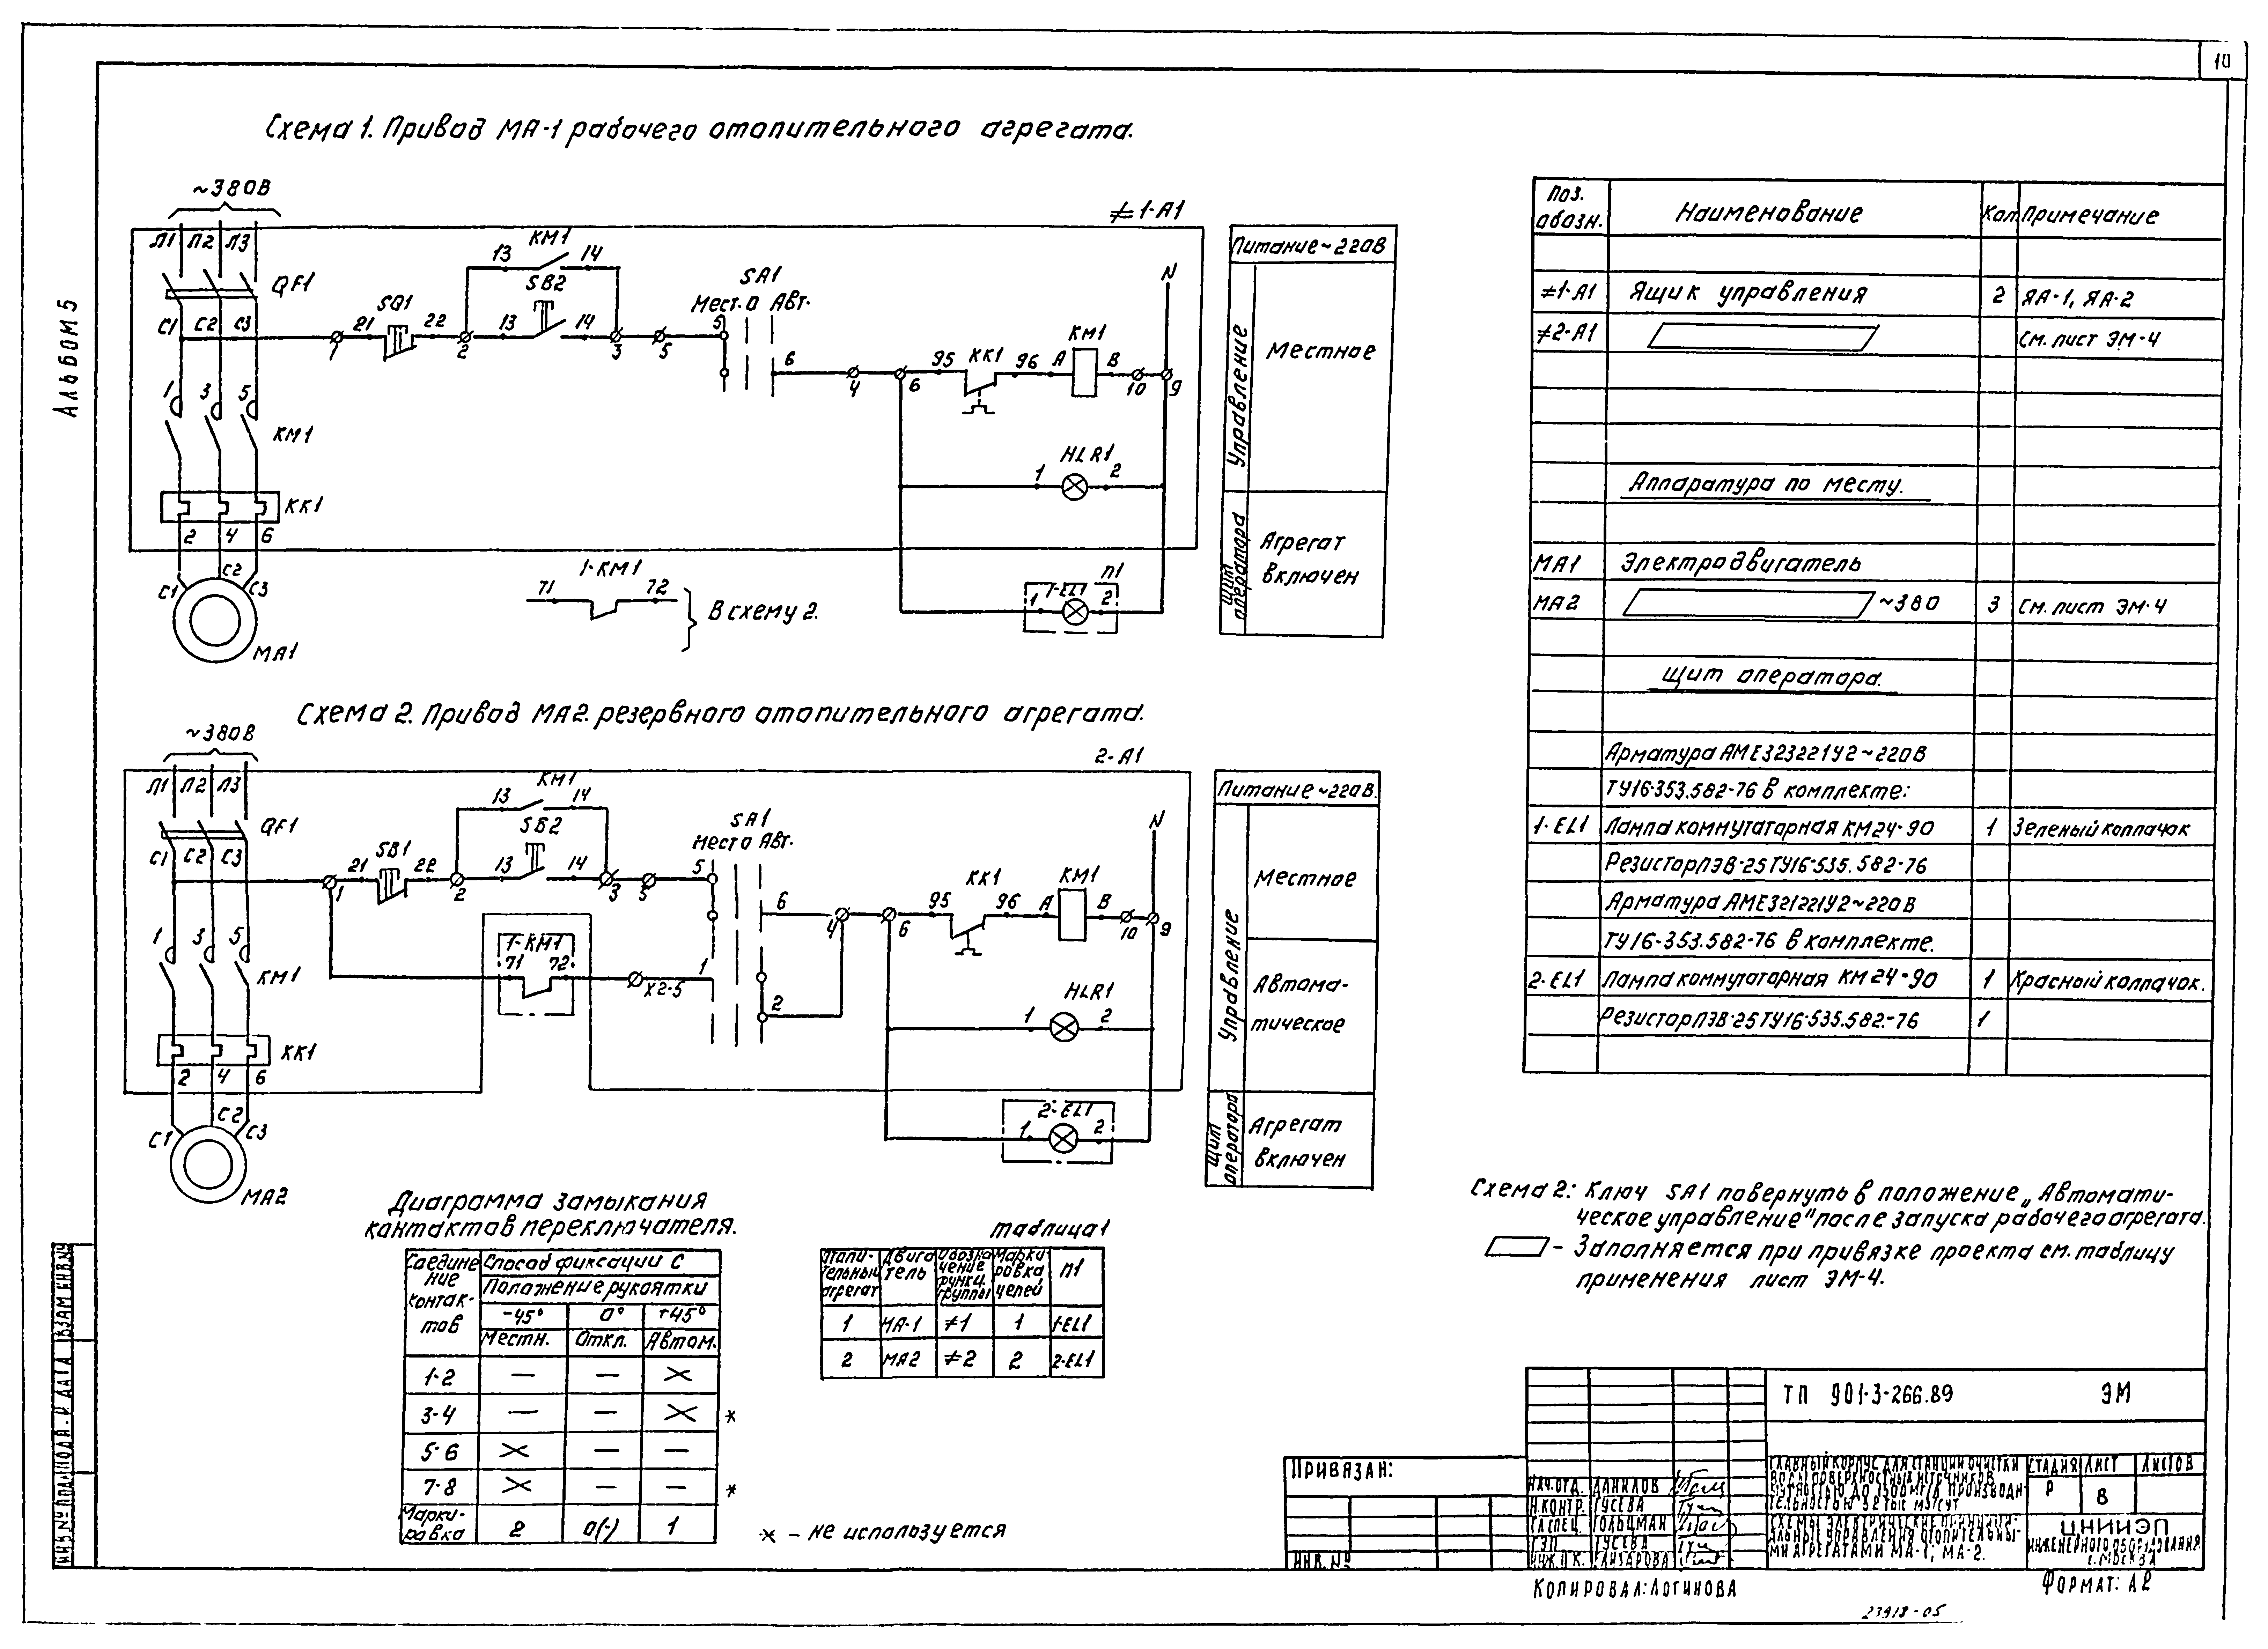 10
Альбом 5
Схема 1. Привод МА-1 рабочего отопительного агрегата.
~380В
≠1-А1
Л1 Л2 Л3
QF1
С1 С2 С3
1 21 SQ1 22 2
13 КМ1 14
13 SB2 14
3 5
SА1
Мест. О Авт.
5
6
4 6
95 КК1 96
А КМ1 В
10 9
N
1 3 5
КМ1
КК1
2 4 6
С1 С2 С3
МА1
1 HLR1 2
71 1-КМ1 72
В схему 2.
1 1-EL1 2
П1
Питание ~220В
Управление
Местное
Щит оператора
Агрегат
включен
Схема 2. Привод МА2. резервного отопительного агрегата.
~380В
2-А1
Л1 Л2 Л3
QF1
С1 С2 С3
1 21 SB1 22 2
13 КМ1 14
13 SB2 14
3 5
SА1
Мест О Авт.
5
6
4 6
95 КК1 96
А КМ1 В
10 9
N
1-КМ1
71 72
Х2-5
1
2
1 3 5
КМ1
КК1
2 4 6
С1 С2 С3
МА2
1 HLR1 2
2-EL1
1 2
Питание ~220В.
Управление
Местное
Автома-
тическое
Щит оператора
Агрегат
включен
Диаграмма замыкания
контактов переключателя.
Соедине
ние
контак-
тов
Способ фиксации С
Положение рукоятки
-45° 0° +45°
Местн. Откл. Автом.
1-2 — — ×
3-4 — — × *
5-6 × — —
7-8 × — — *
Марки-
ровка 2 0(-) 1
* - не используется
Таблица 1
Отопи-
тельный
агрегат
Двига
тель
Обозна
чение
функц.
группы
Марки-
ровка
цепей
П1
1 МА-1 ≠1 1 1-EL1
2 МА2 ≠2 2 2-EL1
Поз.
обозн. Наименование Кол Примечание
≠1-А1 Ящик управления 2 ЯА-1, ЯА-2
≠2-А1 См. лист ЭМ-4
Аппаратура по месту.
МА1 Электродвигатель
МА2 ~380 3 См. лист ЭМ-4
Щит оператора.
Арматура АМЕ323221У2~220В
ТУ16-353.582-76 в комплекте:
1-EL1 Лампа коммутаторная КМ24-90 1 Зеленый колпачок
Резистор ПЭВ-25 ТУ16-535.582-76
Арматура АМЕ321221У2~220В
ТУ16-353.582-76 в комплекте.
2-EL1 Лампа коммутаторная КМ24-90 1 Красный колпачок.
Резистор ПЭВ-25 ТУ16-535.582-76 1
Схема 2: Ключ SА1 повернуть в положение „Автомати-
ческое управление" после запуска рабочего агрегата.
- Заполняется при привязке проекта см. таблицу
применения лист ЭМ-4.
ТП 901-3-266.89 ЭМ
Привязан:
ИНВ. №
НАЧ.ОТД. ДАНИЛОВ
Н.КОНТР. ГУСЕВА
ГА СПЕЦ. ГОЛЬЦМАН
ГЭП ГУСЕВА
ГЛАВНЫЙ КОРПУС ДЛЯ СТАНЦИИ ОЧИСТКИ
ВОДЫ ПОВЕРХНОСТНЫХ ИСТОЧНИКОВ
МУТНОСТЬЮ ДО 1500 МГ/Л ПРОИЗВОДИ-
ТЕЛЬНОСТЬЮ 32 ТЫС М3/СУТ
СТАДИЯ ЛИСТ ЛИСТОВ
Р 8
СХЕМЫ ЭЛЕКТРИЧЕСКИЕ ПРИНЦИПИ-
АЛЬНЫЕ УПРАВЛЕНИЯ ОТОПИТЕЛЬНЫ-
МИ АГРЕГАТАМИ МА-1, МА-2.
ЦНИИЭП
ИНЖЕНЕРНОГО ОБОРУДОВАНИЯ
Г. МОСКВА
КОПИРОВАЛ: ЛОГИНОВА
ФОРМАТ: А2
23918-05
ИНВ № ПОДЛ ПОДП. И ДАТА ВЗАМ ИНВ №